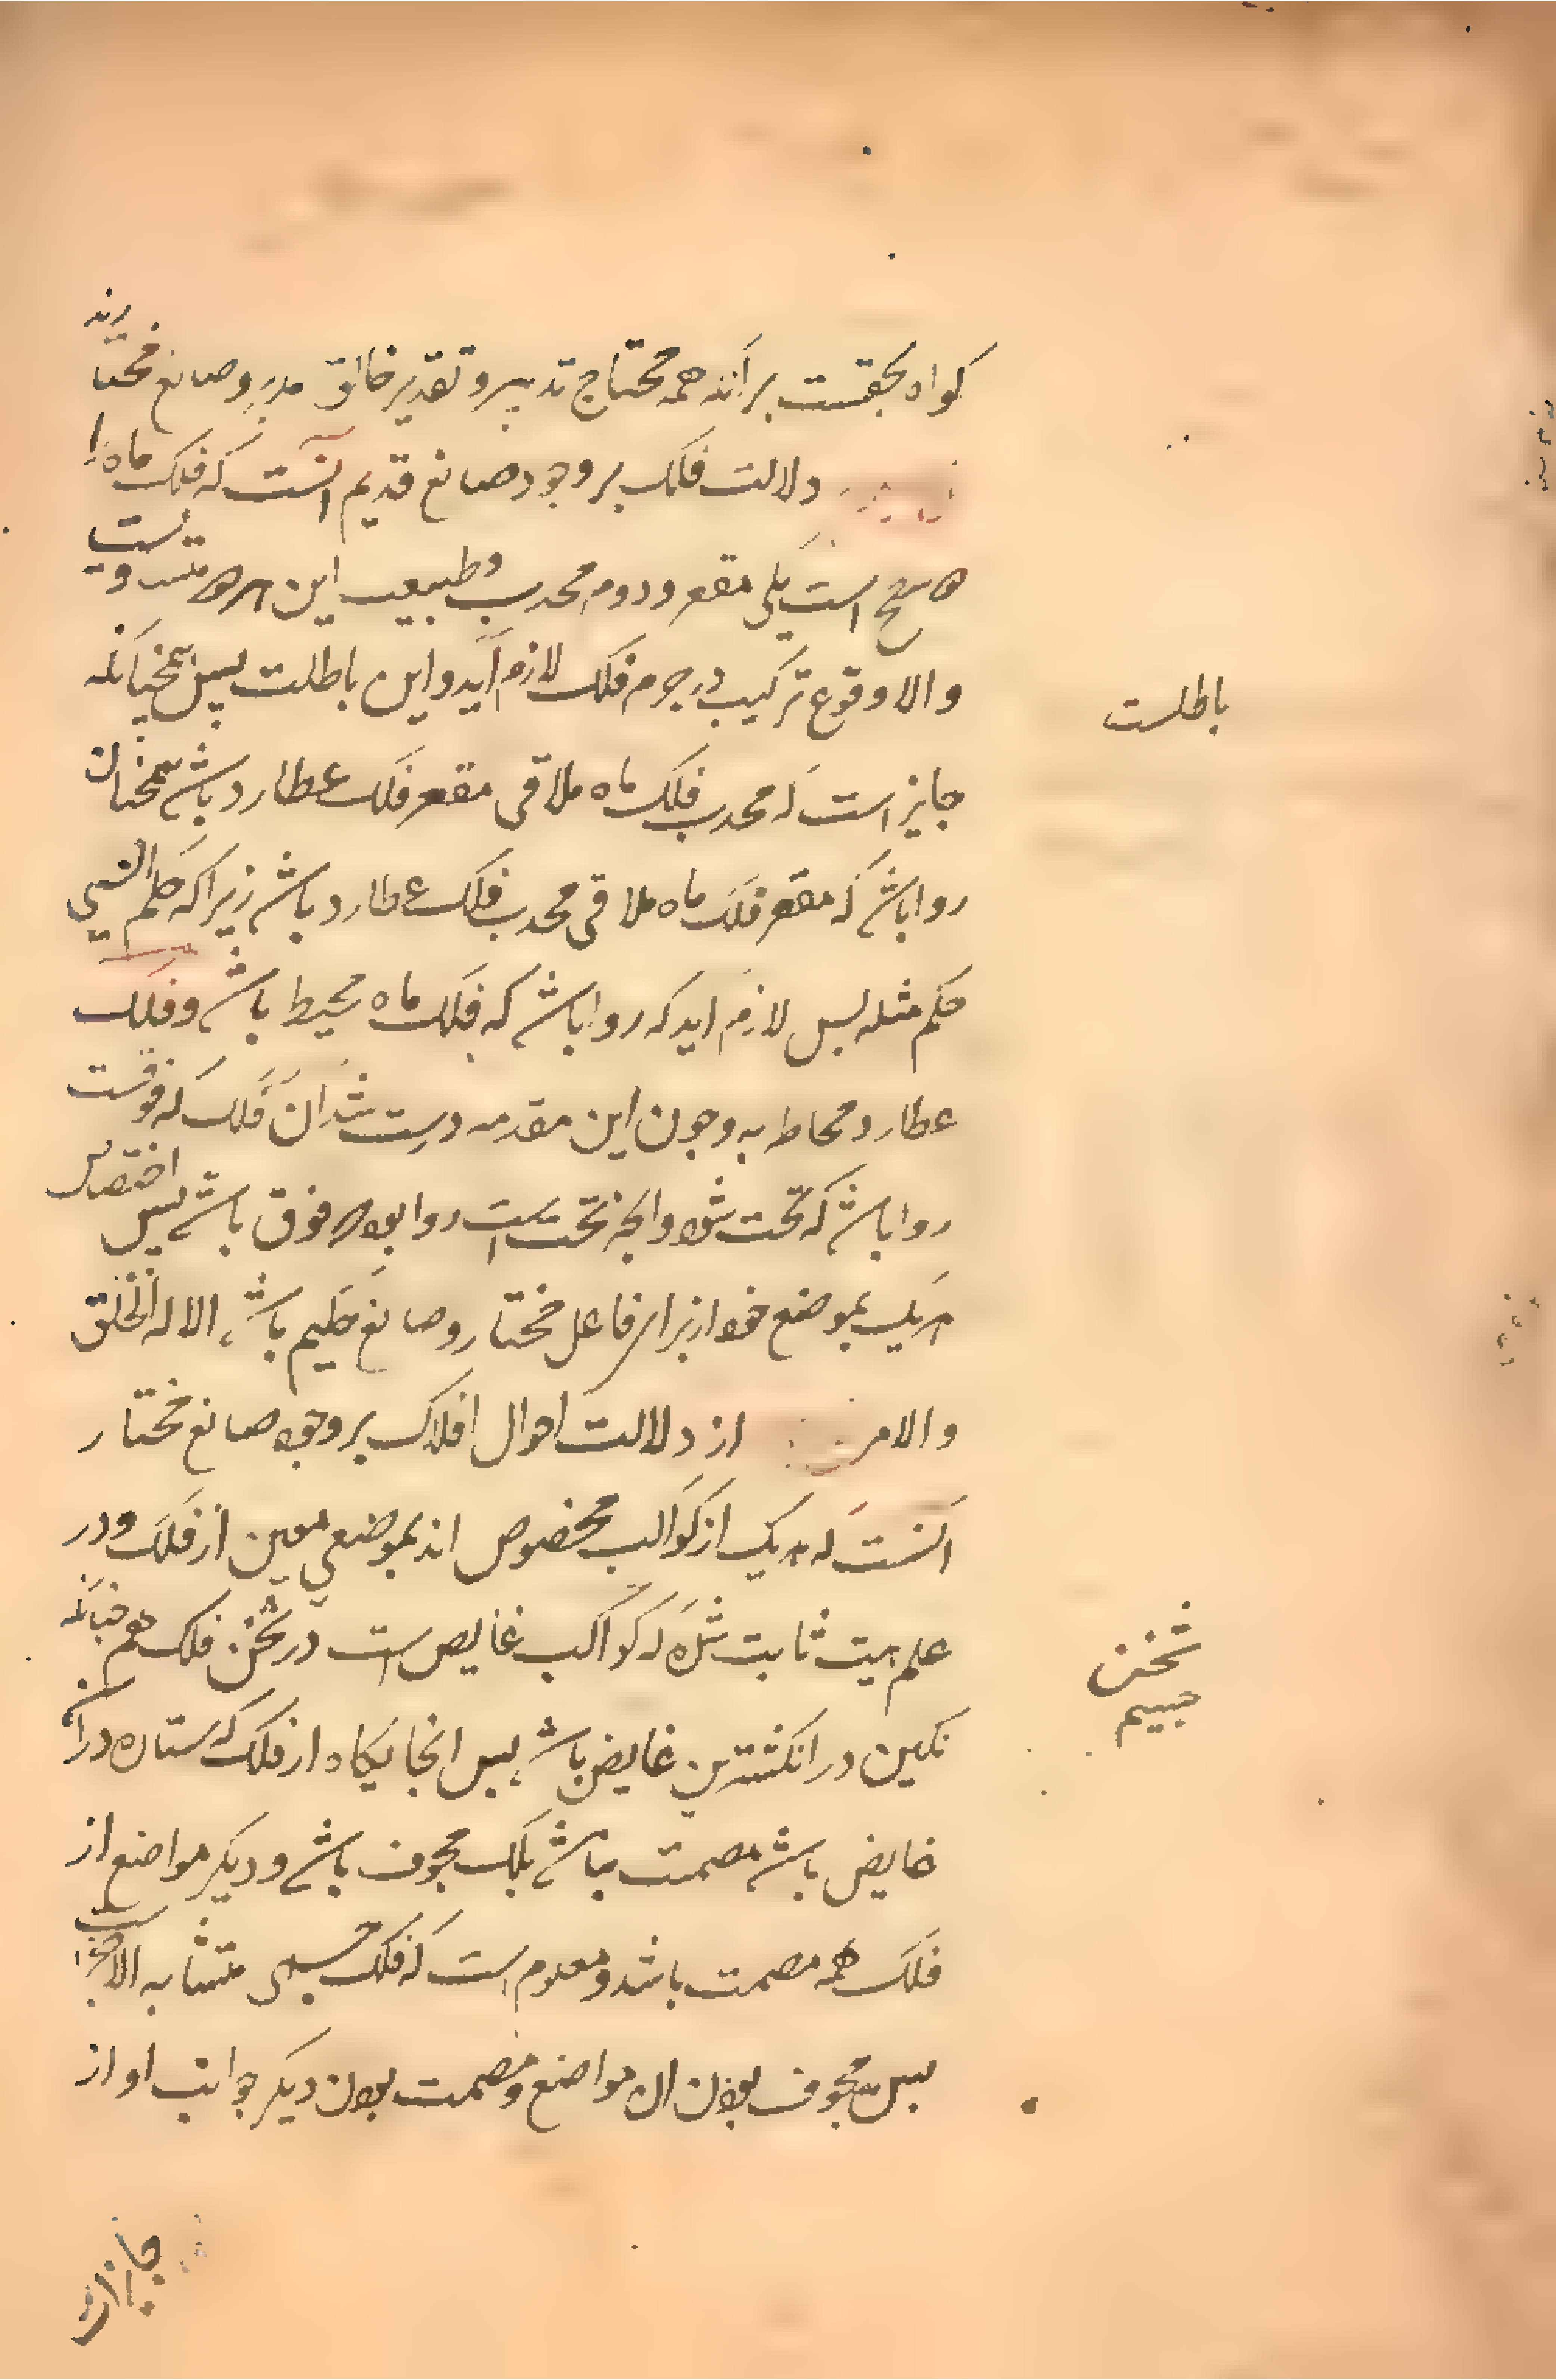 كواه بحقست برانكه همه محتاج تدبير و تقدير خالق مدبر و صانع مختارند
دلالت فلك بر وجود صانع قديم آنست كه فلك ماه را
سطح است يكى مقعر و دوم محدب و طبيعت اين هر متساويست
و الا وقوع تركيب در جرم فلك لازم آيد و اين باطلت پس همچنانكه
باطلست
جايز است كه محدب فلك ماه ملاقى مقعر فلك عطارد باشد همچنان
روا باشد كه مقعر فلك ماه ملاقى محدب فلك عطارد باشد زيرا كه حكم الشيى
حكم مثله پس لازم ايد كه روا باشد كه فلك ماه محيط باشد و فلك
عطارد محاط به و چون اين مقدمه درست شد ان فلك كه فوقست
روا باشد كه تحت شود و انچه تحت است روا بود كه فوق باشد پس اختصاص
هر يك بموضع خود از براى فاعل مختار و صانع حكيم باشد الا له الخلق
و الامر از دلالت احوال افلاك بر وجود صانع مختار
آنست كه هر يك از كواكب مخصوص اند بموضعي معين از فلك و در
علم هيت ثابت شده كه كواكب غايص است در ثخن فلك هم چنانكه
ثخن
جسيم
نكين در انكشترين غايض باشد پس انجايكاه از فلك كه ستاره در آن
غايض باشد مصمت نباشد بلك مجوف باشد و ديكر مواضع از
فلك همه مصمت باشد و معلوم است كه فلك جسمى متشابه الاجزا است
پس مجوف بودن ان مواضع و مصمت بودن ديكر جوانب او از